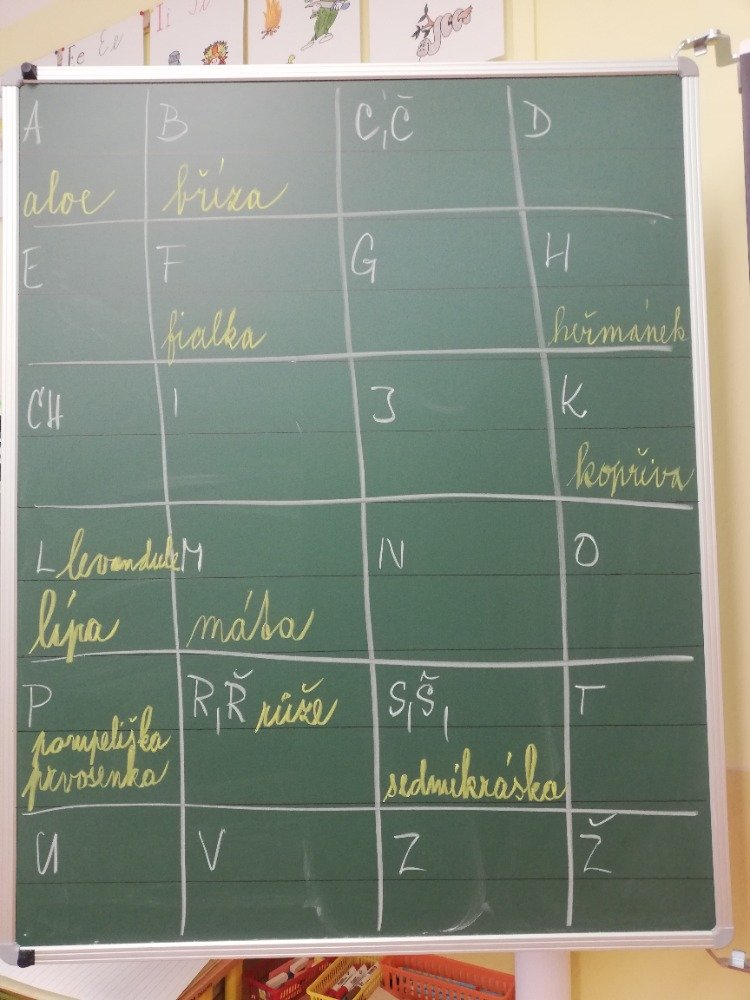 I i
E e E e
A B C, Č D
aloe bříza
E F G H
fialka heřmánek
CH I J K
kopřiva
L levandule M N O
lípa máta
P R, Ř růže S, Š, T
pampeliška
prvosenka sedmikráska
U V Z Ž